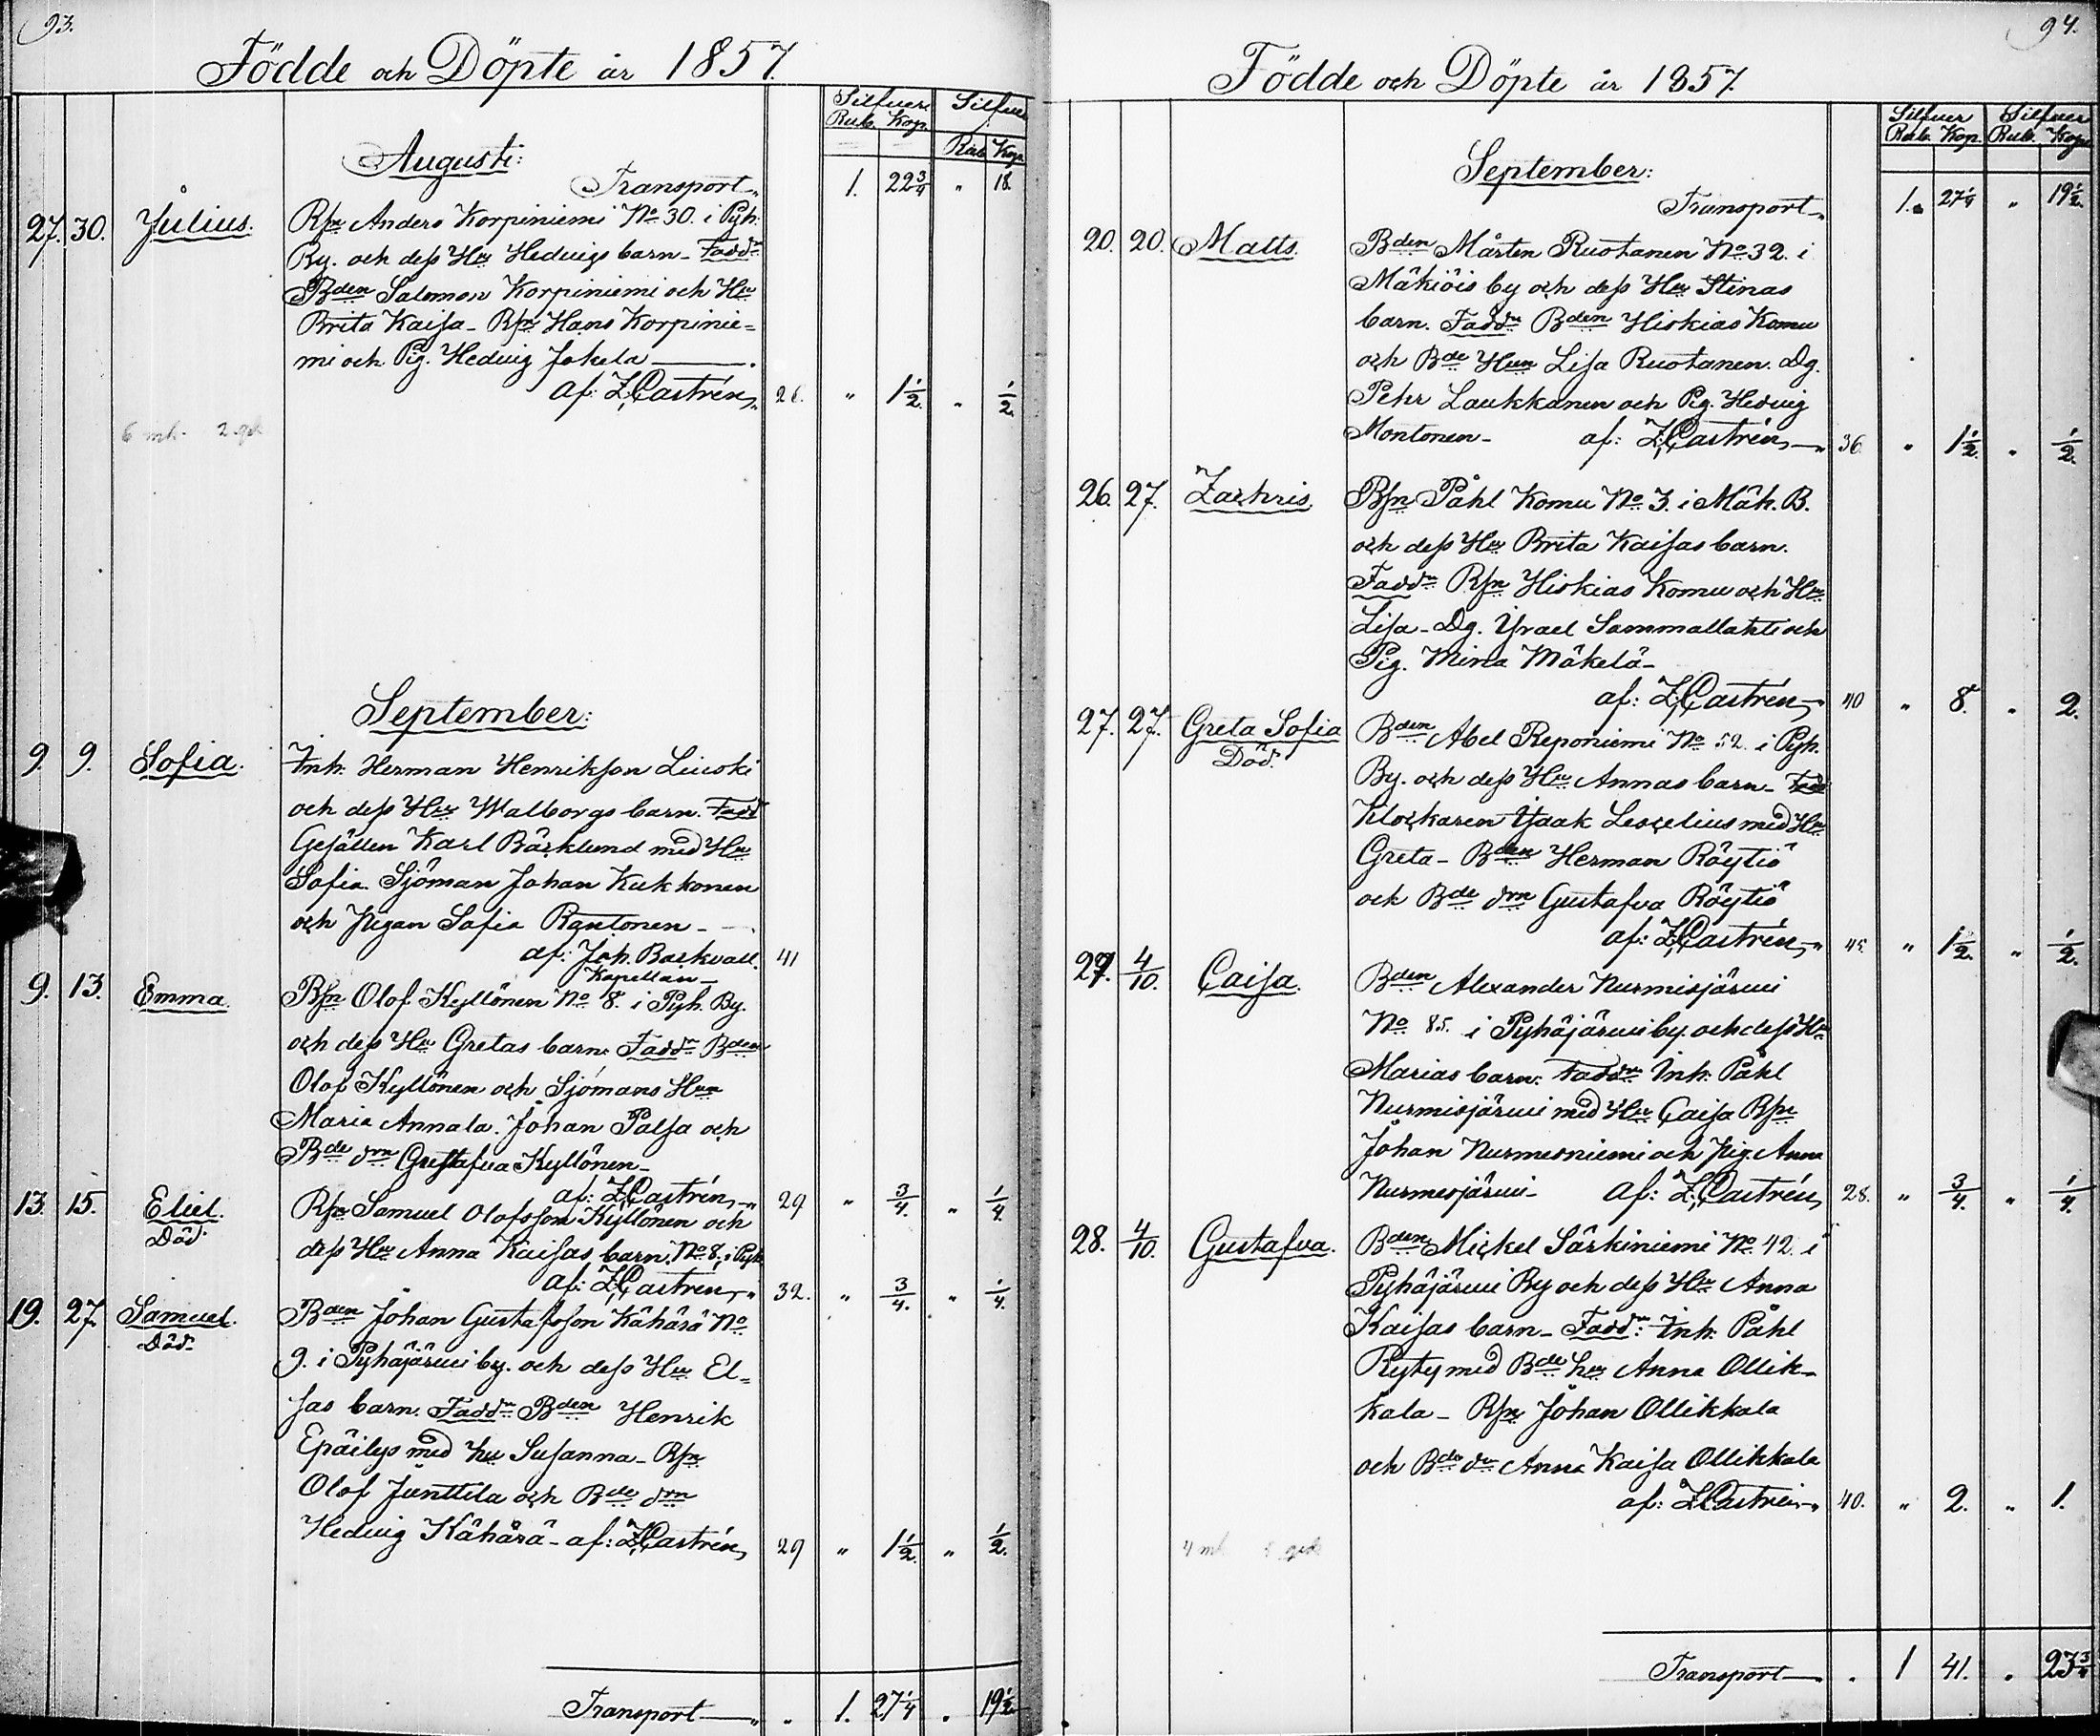 93.
Födde och Döpte år 1857.
Silfuer Silfuer
Rub. Kop. Rub. Kop.
Augusti:
Transport 1. 22 3/4 " 18.
27. 30. Julius. Rfn Anders Korpiniemi No 30. i Pyh.
By. och dess Hu Hedvigs barn – Fadd
Bden Salomon Korpiniemi och Hu
Brita Kaisa – Rfn Hans Korpinie=
mi och Pig. Hedvig Jokela —
af: Z. Castrén 26. " 1 1/2. " 1/2.
6 mk. 2
September:
9. 9. Sofia. Inh. Herman Henriksson
och dess Hu Walborgs barn. Fadd
Gesällen Karl Bäcklund med Hu
Sofia. Sjöman Johan Kukkonen
och Pigan Sofia Rantonen –
af: Joh. 41
Kapellan –
9. 13. Emma. Bfn Olof Kyllönen No 8. i Pyh. By.
och dess Hu Gretas barn. Faddr Bden
Olof Kyllönen och Sjömans Hun
Maria Annala. Johan Palsa och
Bde drn Gustafva Kyllönen –
af: Z. Castrén 29 " 3/4. " 1/4.
13. 15. Eliel. Rfn Samuel Olofsson Kyllönen och
Död. dess Hu Anna Kaisas barn. No 8. i Pyh.
af: Z. Castrén 32. " 3/4. " 1/4.
19. 27. Samuel. Bden Johan Gustafsson Kähärä No
Död. 9. i Pyhäjärvi by. och dess Hu El=
sas barn. Faddr Bden Henrik
Epäilys med hu Susanna – Rfn
Olof Junttila och Bde drn
Hedvig Kähärä – af: Z. Castrén 29 " 1 1/2. " 1/2.
Transport " 1. 27 1/4 " 19 1/2
94.
Födde och Döpte år 1857.
Silfuer Silfuer
Rub. Kop. Rub. Kop.
September:
Transport 1. 27 1/4 " 19 1/2.
20. 20. Matts. Bden Mårten Ruotanen No 32. i
Mäkiöis by och dess Hu Stinas
barn. Faddr Bden Hiskias Komu
och Bde Hun Lisa Ruotanen. Dg.
Pehr Laukkanen och Pig. Hedvig
Montonen – af: Z. Castrén 36. " 1 1/2. " 1/2.
26. 27. Zachris. Bfn Påhl Komu No 3. i Mäk. B.
och dess Hu Brita Kaisas barn.
Faddr Rfn Hiskias Komu och Hu
Lisa – Dg. Israel Sammallahti och
Pig. Mina Mäkelä –
af: Z. Castrén 40 " 8. " 2.
27. 27. Greta Sofia Bden Abel Reponiemi No 52. i Pyh.
Död. By. och dess Hu Annas barn – Fadd
Klockaren Isaak Leocelius med Hu
Greta – Bden Herman Röytiö
och Bde drn Gustafva Röytiö
af: Z. Castrén 45. " 1 1/2. " 1/2.
27. 4/10. Caisa. Bden Alexander Nurmisjärvi
No 85. i Pyhäjärvi by. och dess Hu
Marias barn. Faddr Inh. Påhl
Nurmisjärvi med Hu Caisa Rfn
Johan Nurmesniemi och Pig. Anna
Nurmesjärvi – af: Z. Castrén 28. " 3/4. " 1/4.
28. 4/10. Gustafva. Bden Mickel Särkiniemi No 42. i
Pyhäjärvi By och dess Hu Anna
Kaisas barn – Faddr: Inh. Påhl
Ryty med Bde hu Anna Ollik–
kala – Rfn Johan Ollikkala
och Bde dr Anna Kaisa Ollikkala
af: Z. Castrén 40. " 2. " 1.
4 mk
Transport " 1 41. " 23 3/4